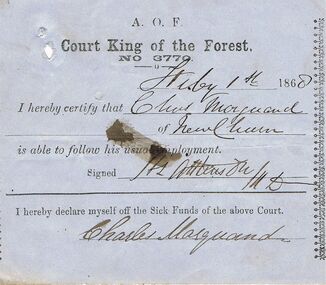 A. O. F.
Court King of the Forest.
NO 3770.
1st 1868
I hereby certify that Chas Marquand
of New Chum
is able to follow his usual employment.
Signed M D
I hereby declare myself off the Sick Funds of the above Court.
Charles Marquand